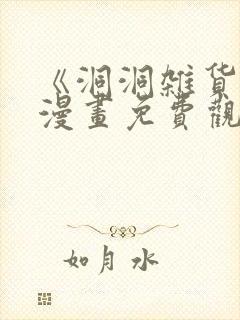 《洞洞雑貨
漫畫免費觀
如月水